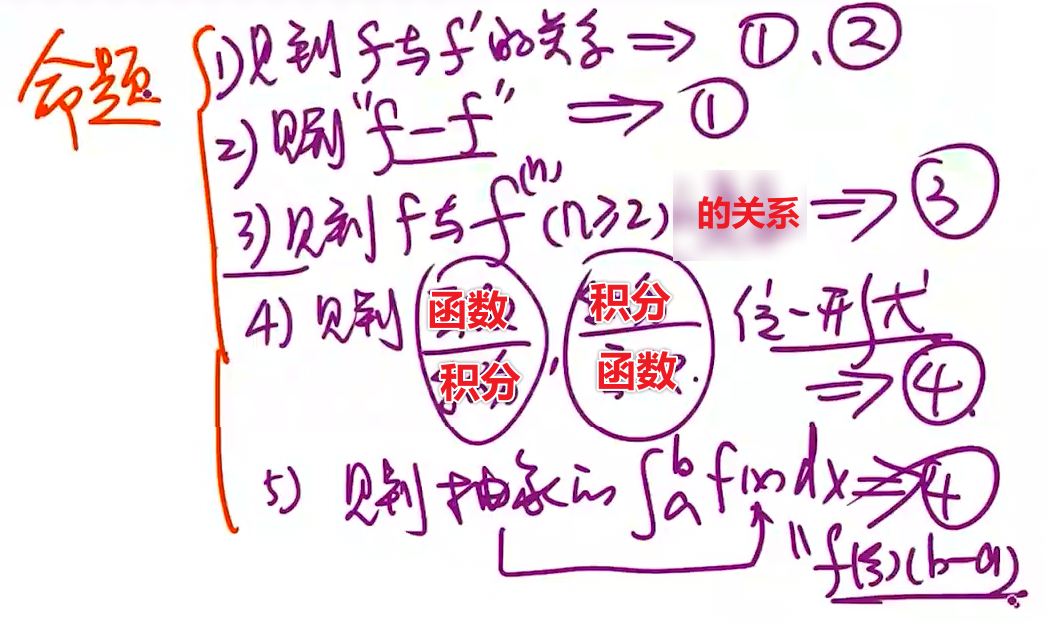 命题
1) 见到 f 与 f' 的关系 ⇒ ①、②
2) 见到 "f－f" ⇒ ①
3) 见到 f 与 f^(n) (n≥2) 的关系 ⇒ ③
4) 见到 函数/积分, 积分/函数. 任一形式
⇒ ④.
5) 见到抽象的 ∫_a^b f(x)dx ⇒ ④
"f(ξ)(b-a)